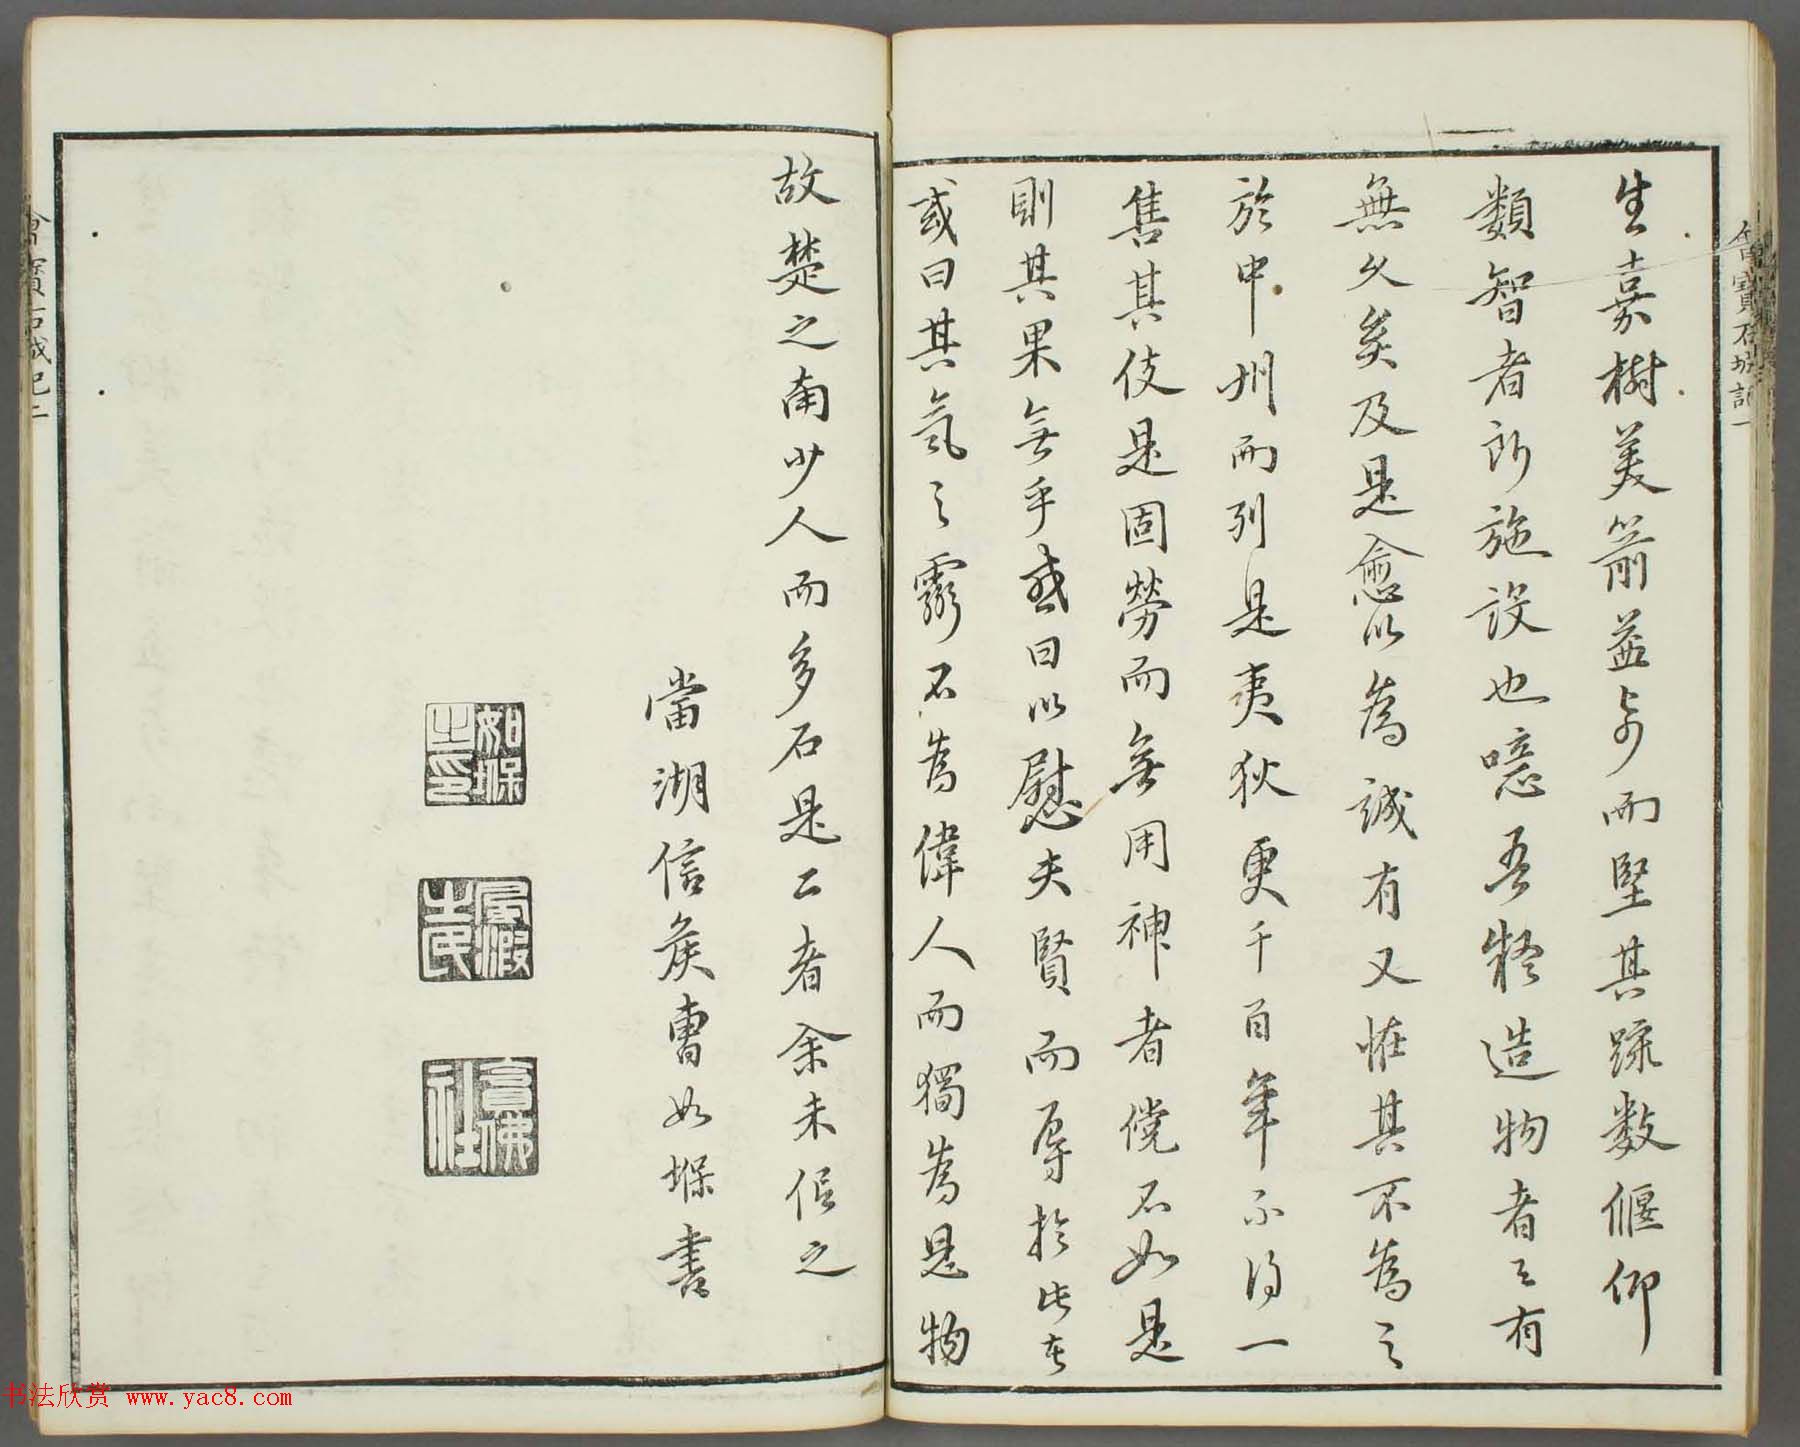 會寶石城記一
生嘉樹美箭益奇而堅其疏數偃仰
類智者所施設也噫吾疑造物者之有
無久矣及是愈以為誠有又怪其不為之
於中州而列是夷狄更千百年不得一
售其伎是固勞而無用神者儻不如是
則其果無乎或曰以慰夫賢而辱於此者
或曰其氣之靈不為偉人而獨為是物
故楚之南少人而多石是二者余未信之
當湖信侯曹如堢書
如堢之印
會寶石城記二
书法欣赏 www.yac8.com